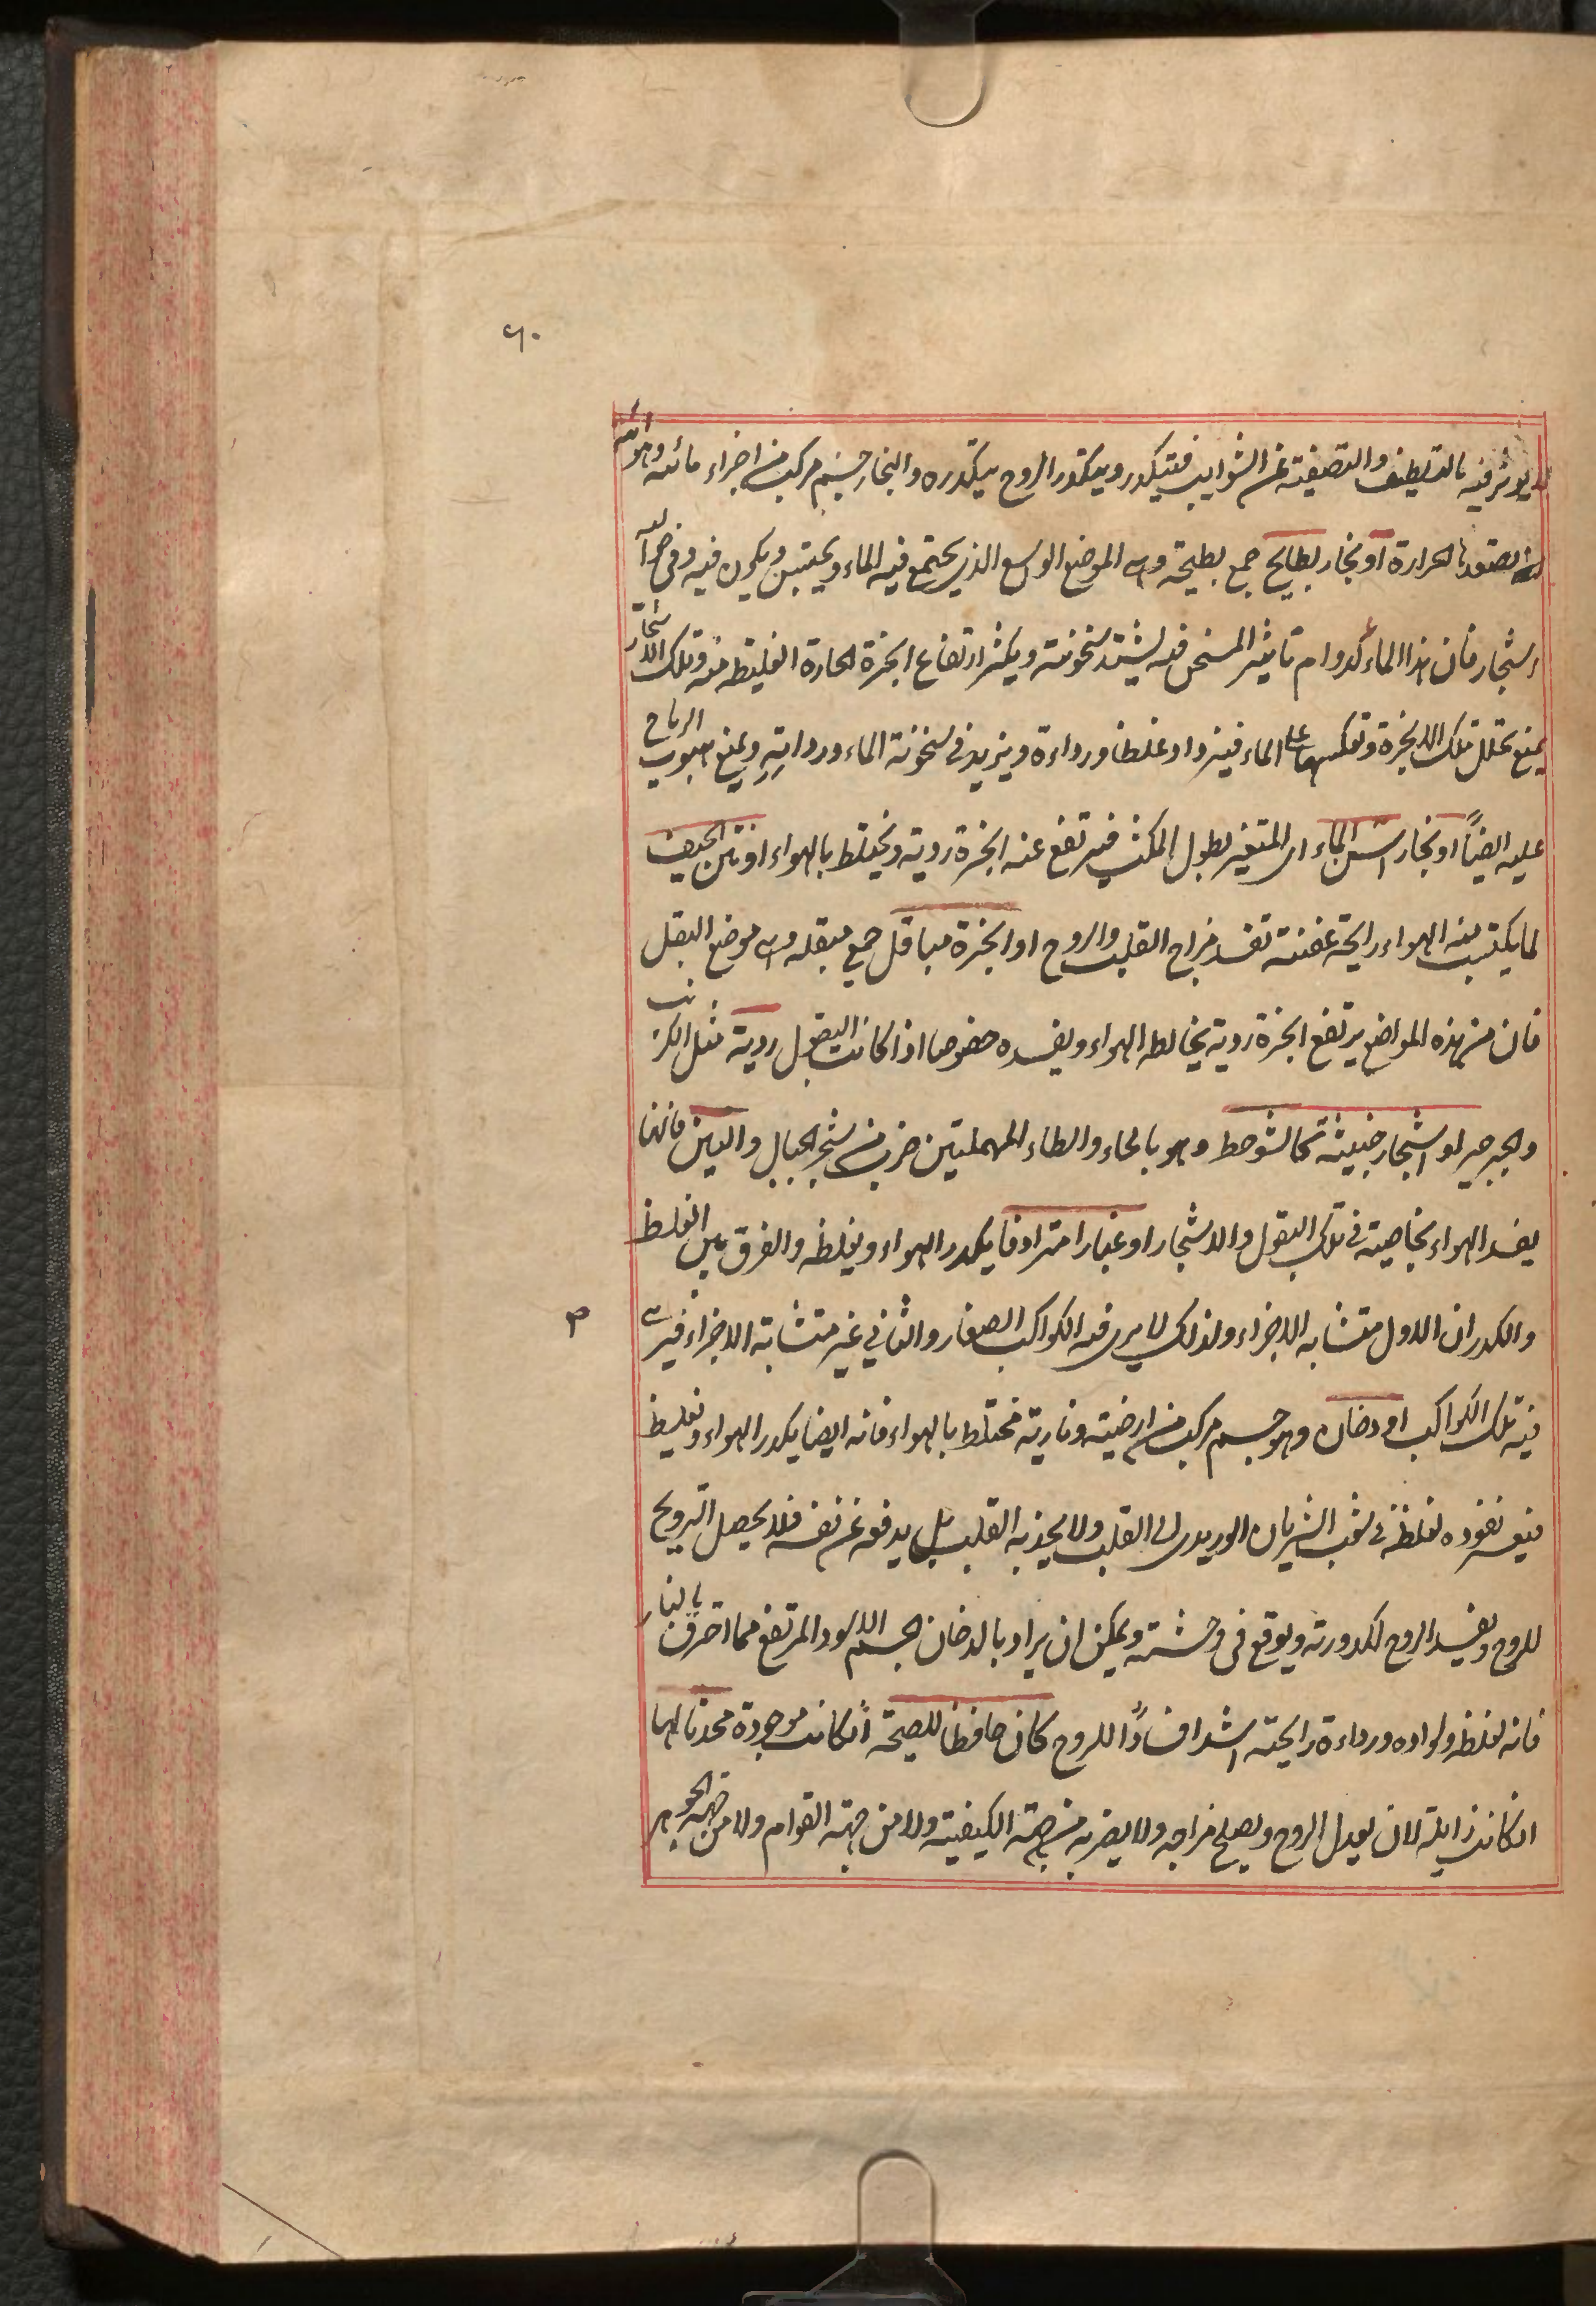 ٦٠
يؤثر فيه بالتلطيف والتصفية عن الشوايب فيتكدر ويتكدر الروح بتكدره والبخار جسم مركب من اجزاء مائيه وهوائيه
يصعدها الحرارة او بخار بطايح جمع بطيحة وهى الموضع الواسع الذى يجتمع فيه الماء ويحتبس ويكون فيه وفى حواليه
اشجار فان هذا الماء لدوام تاثير المسخن فيه يشتد سخونته ويكثر ارتفاع ابخرة الحارة الغليظه منه وتلك الاشجار
يمنع تحلل تلك الابخرة وتعكسها على الماء فيزداد غلظا ورداءة ويزيد فى سخونة الماء ورداءته ويمنع هبوب الرياح
عليه ايضًا او بخار اسن الماء اى المتغير بطول المكث فيرتفع عنه ابخرة ردية ويختلط بالهواء او نتن الجيف
لما يكتسب منه الهواء رايحة عفنة تفسد مزاج القلب والروح او ابخرة مباقل جمع مبقله وهى موضع البقل
فان من هذه المواضع يرتفع ابخرة ردية يخالطه الهواء ويفسده خصوصا اذا كانت البقول ردية مثل الكرنب
والجرجير او اشجار خبيثة كالشوحط وهو بالحاء والطاء المهملتين ضرب من شجر الجبال والتين فانهما
يفسد الهواء بخاصية فى تلك البقول والاشجار او غبارا مترادفا يكدر الهواء ويغلظه والفرق بين الغلظ
والكدر ان الاول متشابه الاجزاء ولذلك لا يرى فيه الكواكب الصغار والثاني غير متشابة الاجزاء فيرى
٣
فيه تلك الكواكب او دخان وهو جسم مركب من ارضية ونارية مختلط بالهواء فانه ايضا يكدر الهواء ويغلظ
فيعسر نفوذه لغلظه فى شعب الشريان الوريدى الى القلب ولا يجذبه القلب بل يدفعه عن نفسه فلا يحصل الترويح
للروح ويفسد الروح لكدورته ويوقع فى وحشته ويمكن ان يراد بالدخان الجسم الاسود المرتفع مما احترق بالنار
فانه لغلظه ولسواده ورداءة رايحته اشد افسادًا للروح كان حافظا للصحة انكانت موجودة محدثا لها
انكانت زايلة لان يعدل الروح ويصلح مزاجه ولا يضر به من جهة الكيفية ولا من جهة القوام ولا من جهة الجوهر